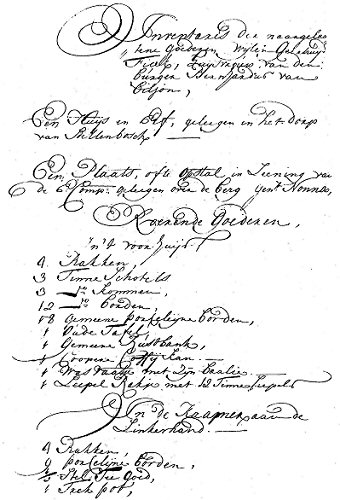 Inventaris der naargelaa
tene Goederen, Wijlen
huijsvrouw van den
burger Bernardus van
Biljon,
Een Huijs en Erf, geleegen in het dorp
van Stellenbosch
Een Plaats, ofte opstal in Leening van
de E Comp: geleegen over de berg
Roerende Goederen,
In't voorhuijs
4 Rakken,
3 Tinne Schotels
3 do Kommen,
12 do borden,
18 gemeene porcelijne borden,
1 Oude Tafel,
1 gemeene Rustbank,
1 Coopere Coffij Kan
1 met zijn
1 Leepel Rakje met 12 Tinne Leepels
In de Kaamer aan de
Linkerhand
4 Rakken,
9 porcelijne borden,
½ Stel Tee goed,
1 Trek pot,